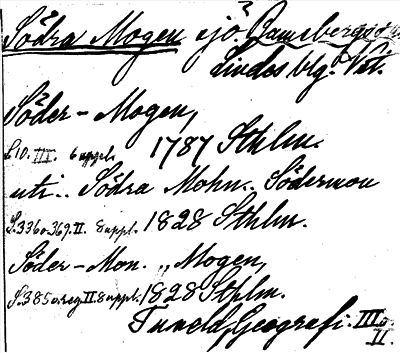 Södra Mogen sjö. Ramsbergs sn.
Lindes blg. Vst.
Söder-Mogen,
S.10. III. 6 uppl. 1787 Sthlm.
uti.. Södra Mohn.. Södermon
S.336 o. 369. II. 8 uppl. 1828 Sthlm.
Söder-Mon. „Mogen,
S.385 o. reg. II. 8 uppl. 1828 Sthlm.
Tuneld, Geografi. III o.
II.